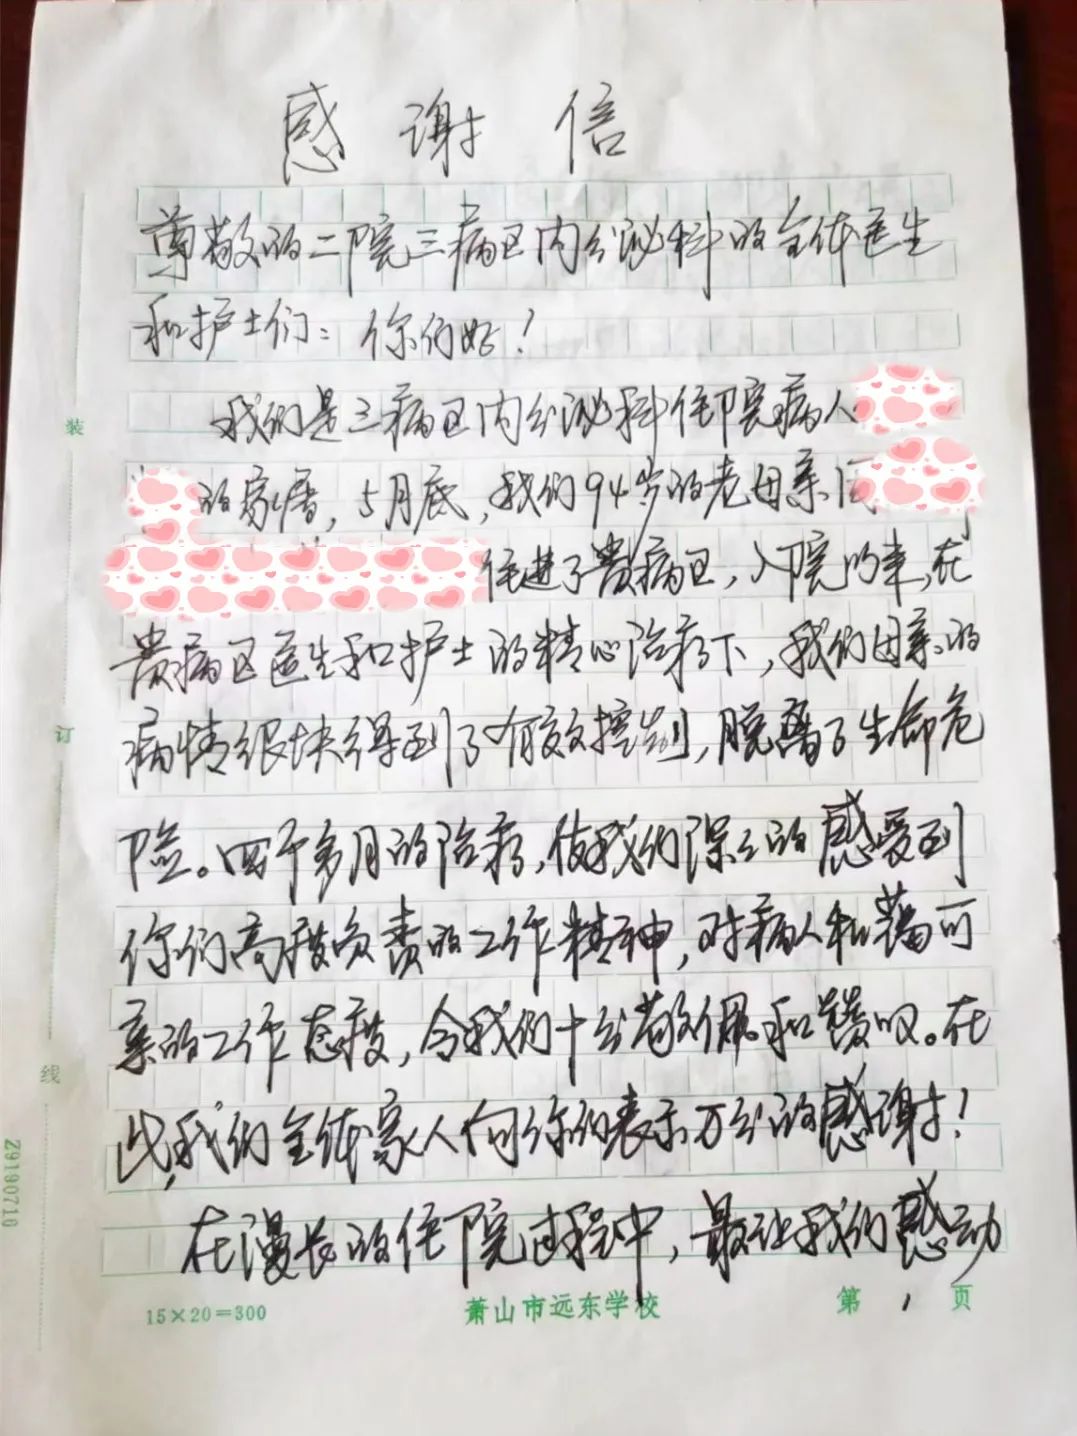 感谢信
尊敬的二院三病区内分泌科的全体医生
和护士们：你们好！
我们是三病区内分泌科住院病人
的家属，5月底，我们94岁的老母亲因
住进了贵病区，入院以来，在
贵病区医生和护士的精心治疗下，我们母亲的
病情很快得到了有效控制，脱离了生命危
险。四个多月的治疗，使我们深深的感受到
你们高度负责的工作精神，对病人和蔼可
亲的工作态度，令我们十分敬佩和赞叹。在
此，我们全体家人向你们表示万分的感谢！
在漫长的住院过程中，最让我们感动
15×20=300 萧山市远东学校 第1页
装
订
线
Z9190710